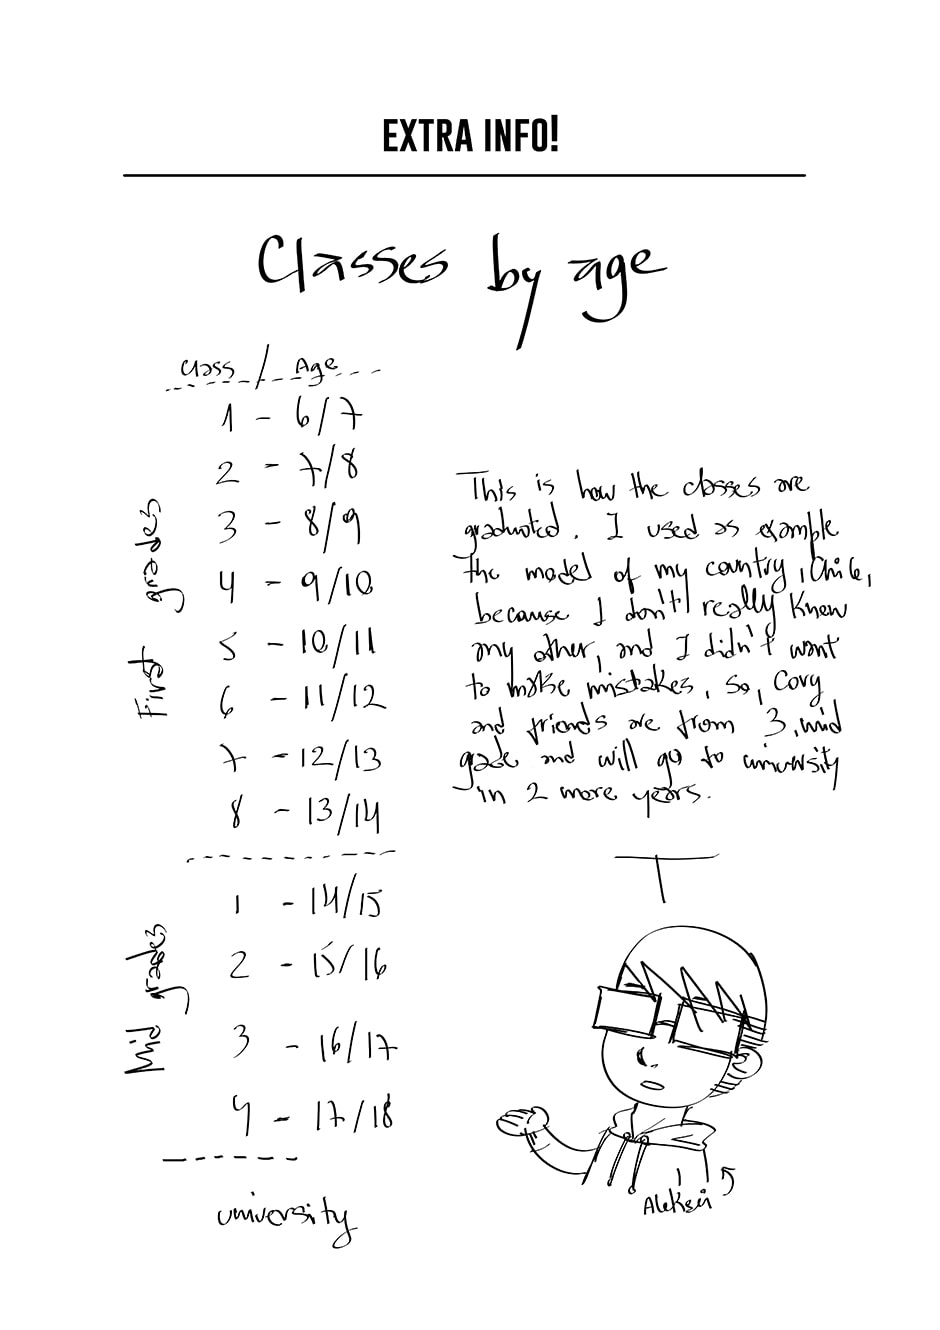 EXTRA INFO!
Classes by age
Class / Age
1 - 6/7
2 - 7/8
3 - 8/9
4 - 9/10
5 - 10/11
6 - 11/12
7 - 12/13
8 - 13/14
First grades
1 - 14/15
2 - 15/16
3 - 16/17
4 - 17/18
Mid grades
university
This is how the classes are
graduated. I used as example
the model of my country, Chile,
because I don't really know
any other, and I didn't want
to make mistakes, so, Cory
and friends are from 3, mid
grade and will go to university
in 2 more years.
Aleksei